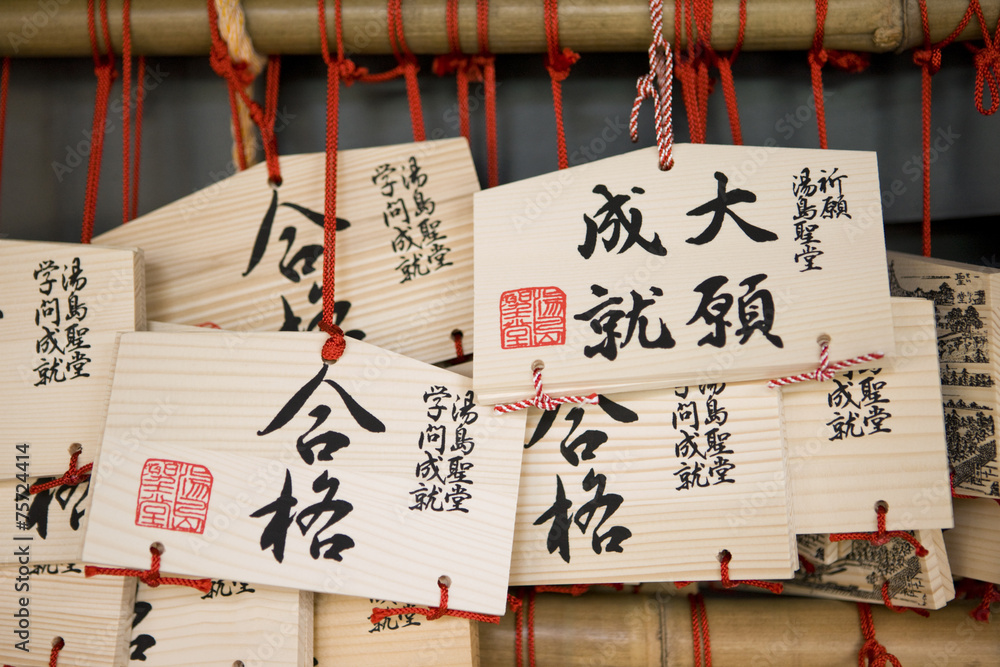 祈願
湯島聖堂
大願
成就
湯島聖堂
湯島聖堂
学問成就
合格
湯島聖堂
学問成就
合格
湯島聖堂
湯島聖堂
学問成就
合格
湯島聖堂
学問成就
格
聖堂
成就
Adobe Stock | #75724414